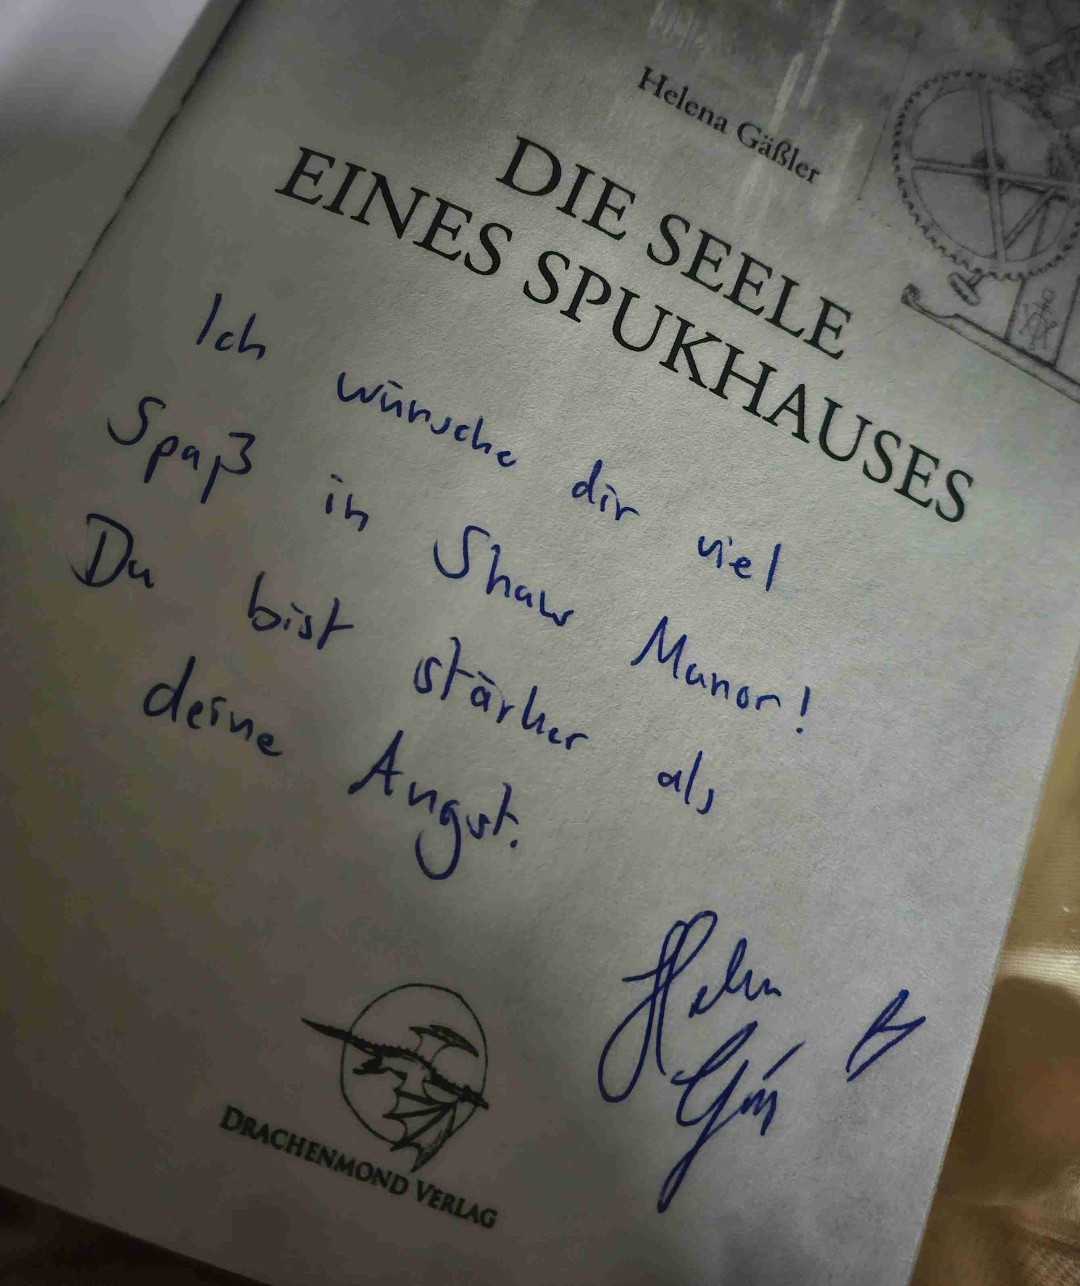 Helena Gäßler
DIE SEELE
EINES SPUKHAUSES
Ich wünsche dir viel
Spaß in Shaw Manor!
Du bist stärker als
deine Angst.
DRACHENMOND VERLAG